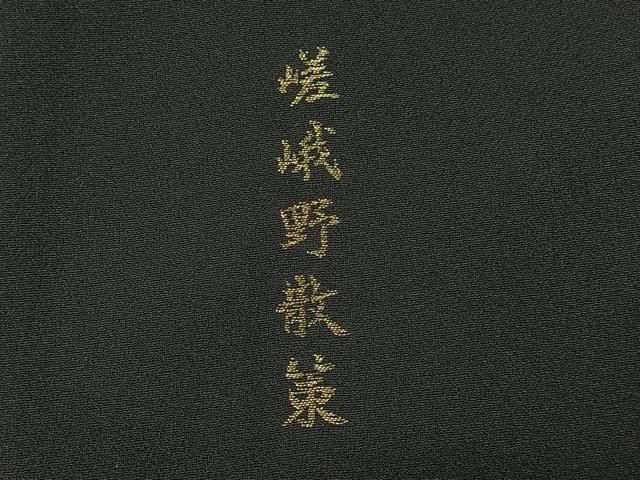 嵯峨野散策